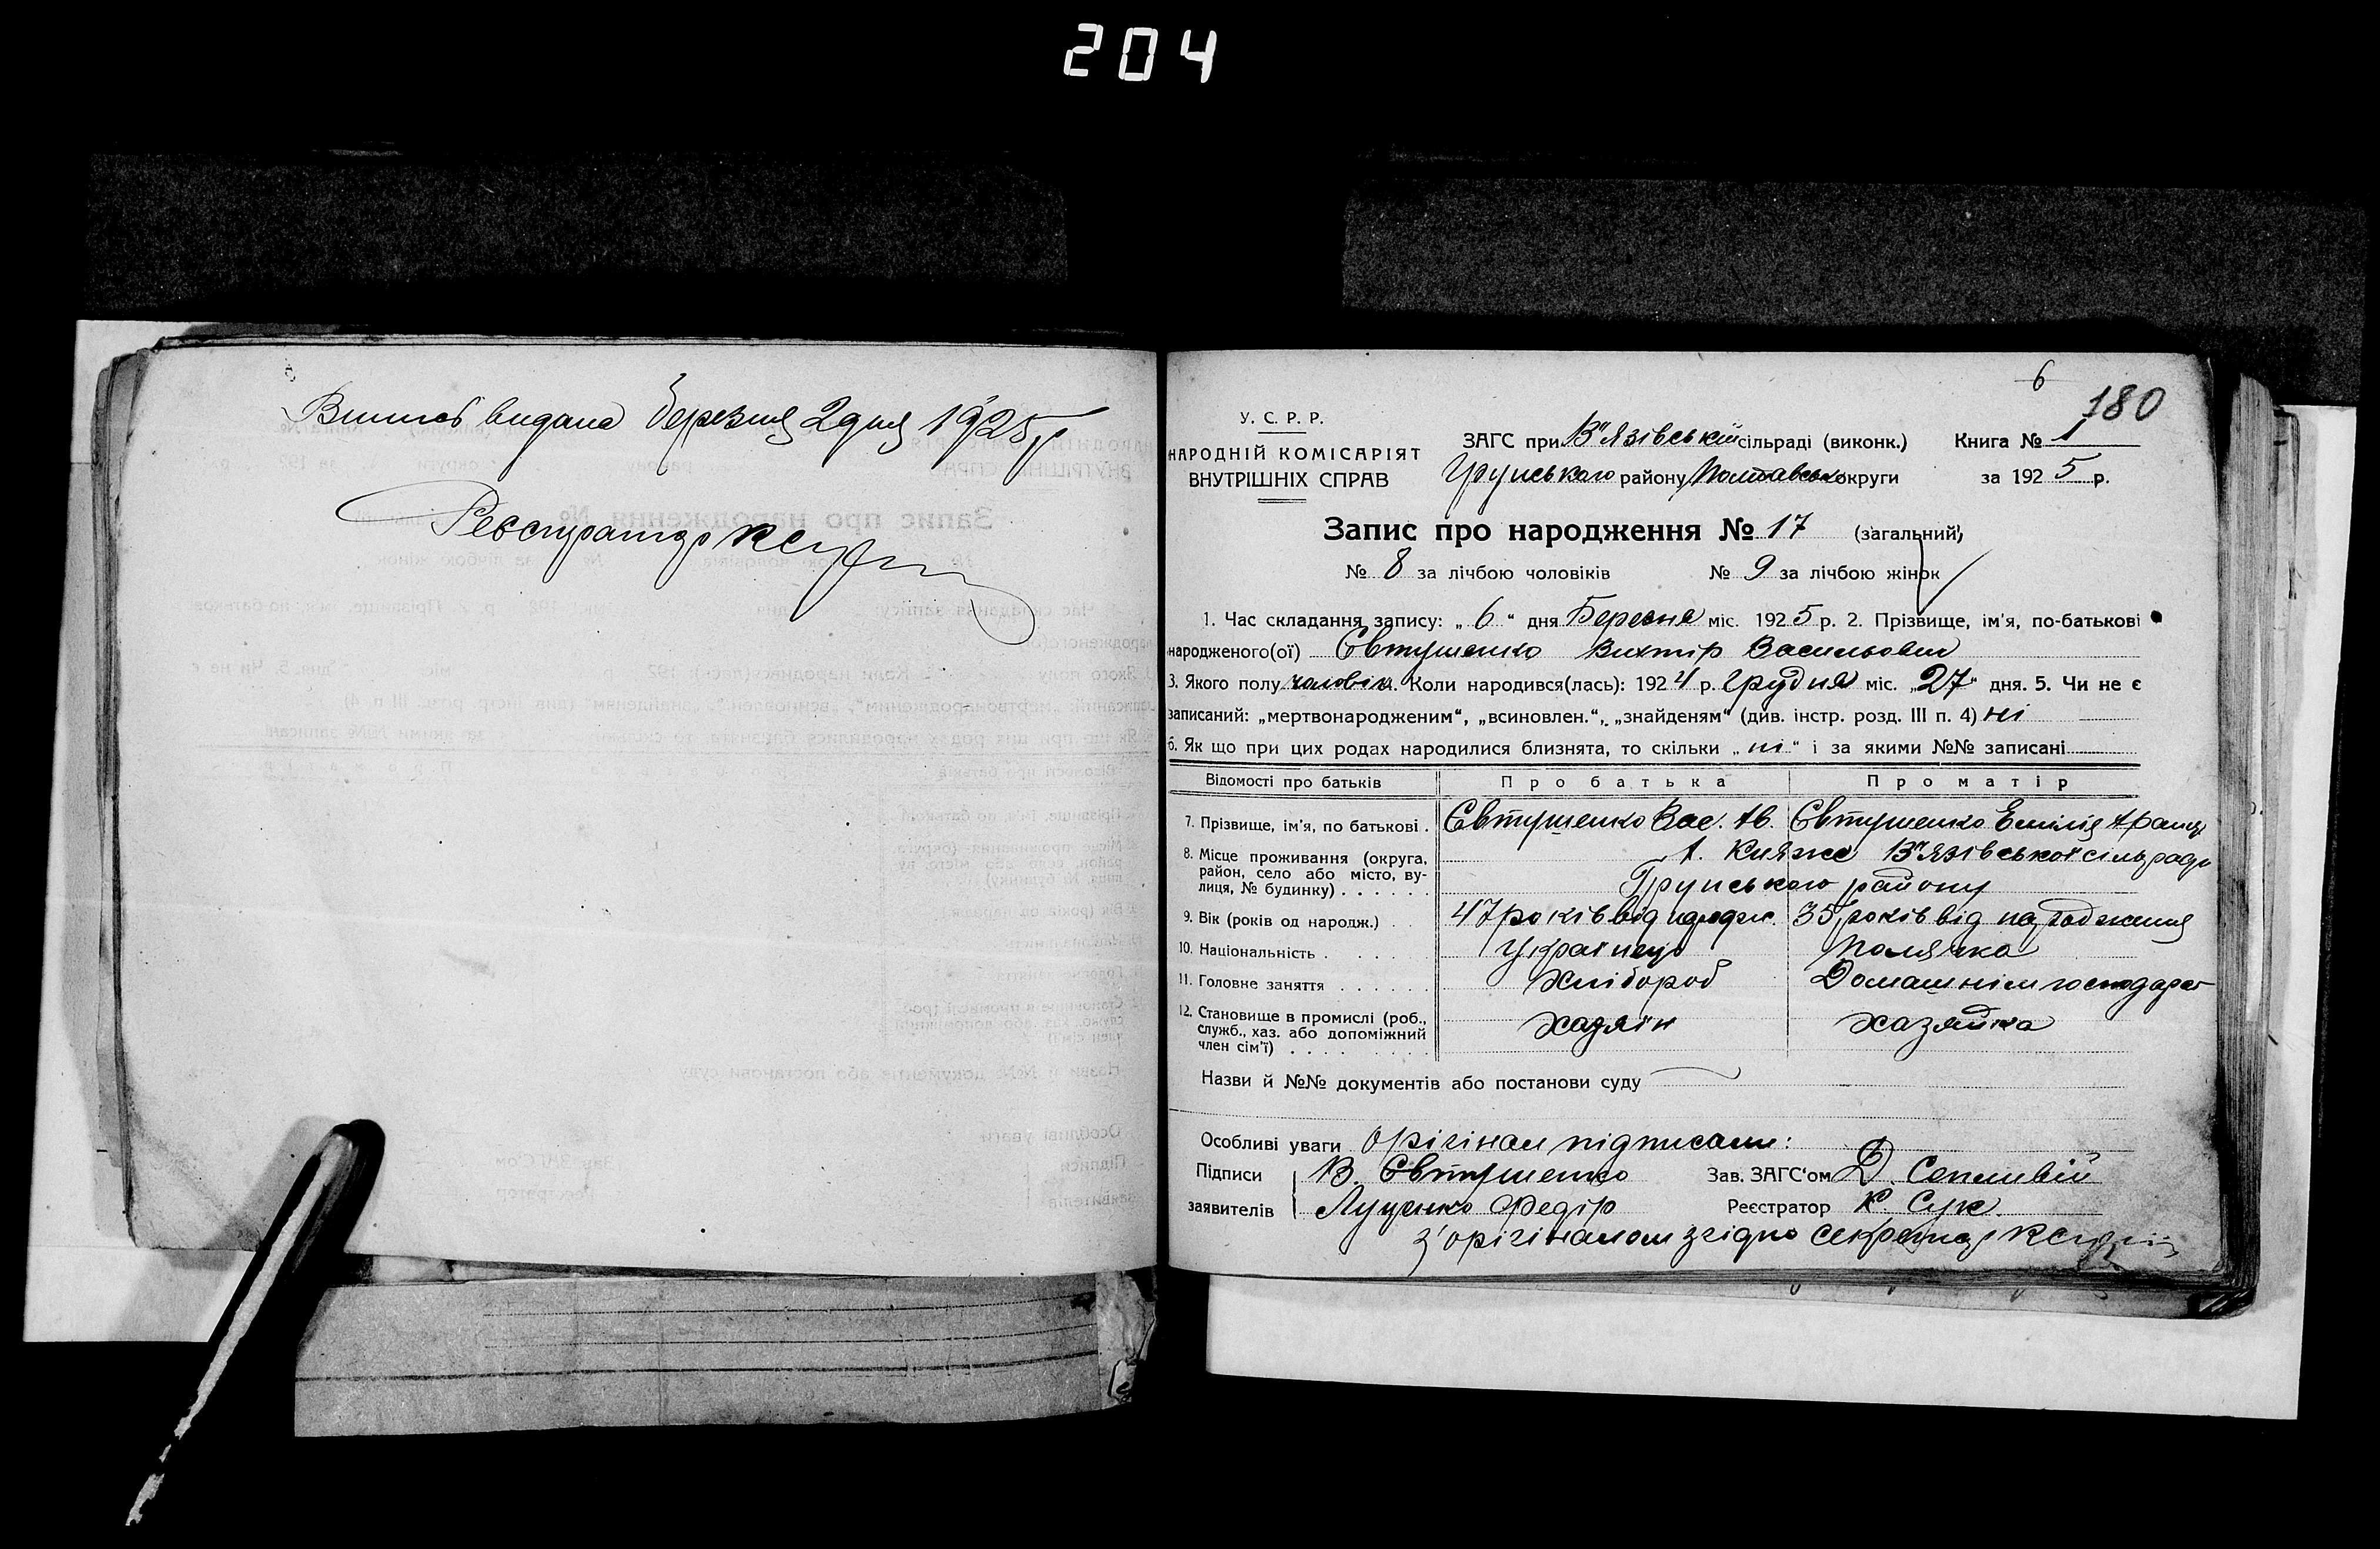 204
Выпись видана Березня 2 дня 1925 р
Реєстратор К Сук
6
180
У. С. Р. Р.
НАРОДНІЙ КОМІСАРІЯТ
ВНУТРІШНІХ СПРАВ
ЗАГС при В"язівській сільраді (виконк.) Книга № 1
Грунського району Полтавсько округи за 1925 р.
Запис про народження № 17 (загальний)
№ 8 за лічбою чоловіків № 9 за лічбою жінок
1. Час складання запису: „ 6 “ дня Березня міс. 1925 р. 2. Прізвище, ім'я, по-батькові
народженого(ої) Євтушенко Виктір Васильович
3. Якого полу чоловіч. Коли народився(лась): 1924 р. Грудня міс. „27“ дня. 5. Чи не є
записаний: „мертвонародженим“, „всиновлен.“, „знайденям“ (див. інстр. розд. III п. 4) ні
6. Як що при цих родах народилися близнята, то скільки „ ні “ і за якими №№ записані
Відомості про батьків Про батька Про матір
7. Прізвище, ім'я, по батькові . Євтушенко Вас. Ів. Євтушенко Емілія Франц
8. Місце проживання (округа, район, село або місто, вулиця, № будинку) . . . . . .
Княже В"язівської сільради
Грунського району
9. Вік (років од народж.) . . 47 років від народж. 35 років від народження
10. Національність . . . . . Українець Полячка
11. Головне заняття . . . . . . Хлібороб Домашнім господарст
12. Становище в промислі (роб., служб., хаз. або допоміжний член сім'ї) . . . . . . . . Хазяїн Хазяйка
Назви й №№ документів або постанови суду
Особливі уваги Орігінал підписали:
Підписи В. Євтушенко Зав. ЗАГС'ом Д.
заявителів Луценко Федір Реєстратор К. Сук
З'орігіналом згідно секретар К Сук